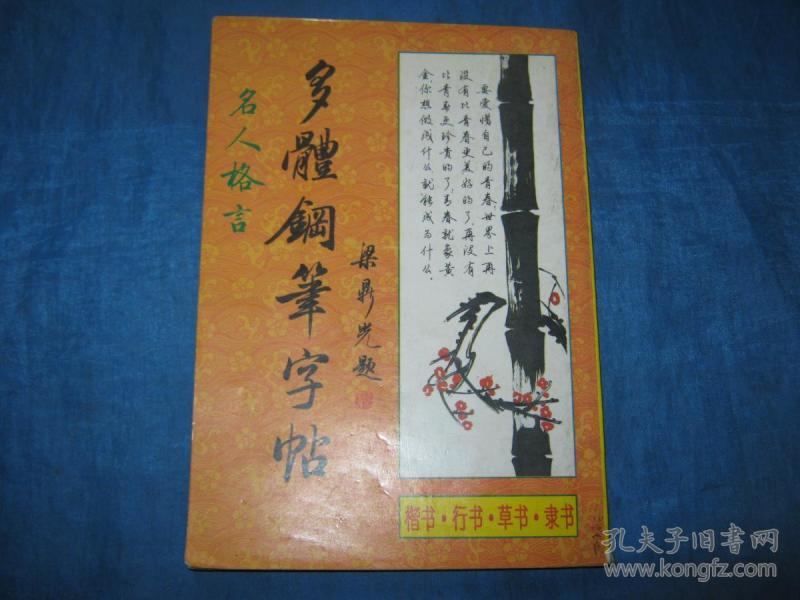 名人格言
多體鋼筆字帖
梁鼎光题
要爱惜自己的青春,世界上再
没有比青春更美好的了,再没有
比青春更珍贵的了,青春就象黄
金,你想做成什么,就能成为什么。
楷书·行书·草书·隶书
孔夫子旧书网
www.kongfz.com